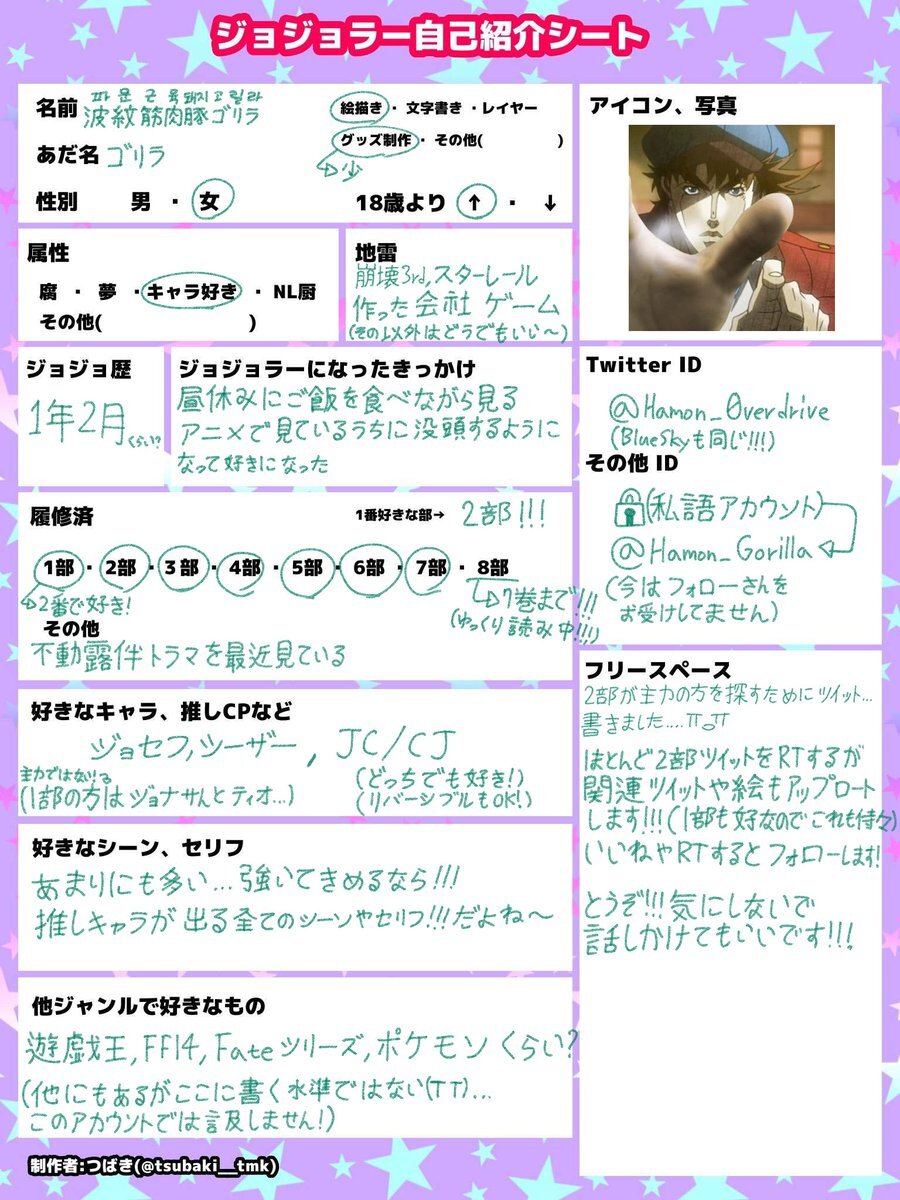 ジョジョラー自己紹介シート
파문근육돼지고릴라
名前 波紋筋肉豚ゴリラ
絵描き・文字書き・レイヤー
グッズ制作・その他( )
↳少
あだ名 ゴリラ
性別 男・女
18歳より ↑・↓
属性
腐・夢・キャラ好き・NL厨
その他( )
地雷
崩壊3rd,スターレール
作った会社 ゲーム
(その以外はどうでもいい〜)
ジョジョ歴
1年2月
くらい?
ジョジョラーになったきっかけ
昼休みにご飯を食べながら見る
アニメで見ているうちに没頭するように
なって好きになった
履修済
1番好きな部→ 2部!!!
1部・2部・3部・4部・5部・6部・7部・8部
↳2番で好き!
↳7巻まで!!!
(ゆっくり読み中!!!)
その他
不動露伴トラマを最近見ている
好きなキャラ、推しCPなど
ジョセフ,シーザー, JC/CJ
(どっちでも好き!)
(リバーシブルもOK!)
主力ではない
(1部の方はジョナサんとティオ...)
好きなシーン、セリフ
あまりにも多い...強いてきめるなら!!!
推しキャラが出る全てのシーンやセリフ!!!だよね〜
他ジャンルで好きなもの
遊戯王,FF14,Fateツリーズ,ポケモンくらい?
(他にもあるがここに書く水準ではない(TT)...
このアカウントでは言及しません!)
制作者:つばき(@tsubaki__tmk)
アイコン、写真
Twitter ID
@Hamon_Overdrive
(BlueSkyも同じ!!!)
その他 ID
(私語アカウント)
@Hamon_Gorilla
(今はフォローさんを
お受けしてません)
フリースペース
2部が主力の方を探すためにツイット...
書きました....ㅠㅠ
ほとんど2部ツイットをRTするが
関連ツイットや絵もアップロート
します!!!(1部も好なのでこれも時々)
いいねやRTするとフォローします!
とうぞ!!!気にしないで
話しかけてもいいです!!!